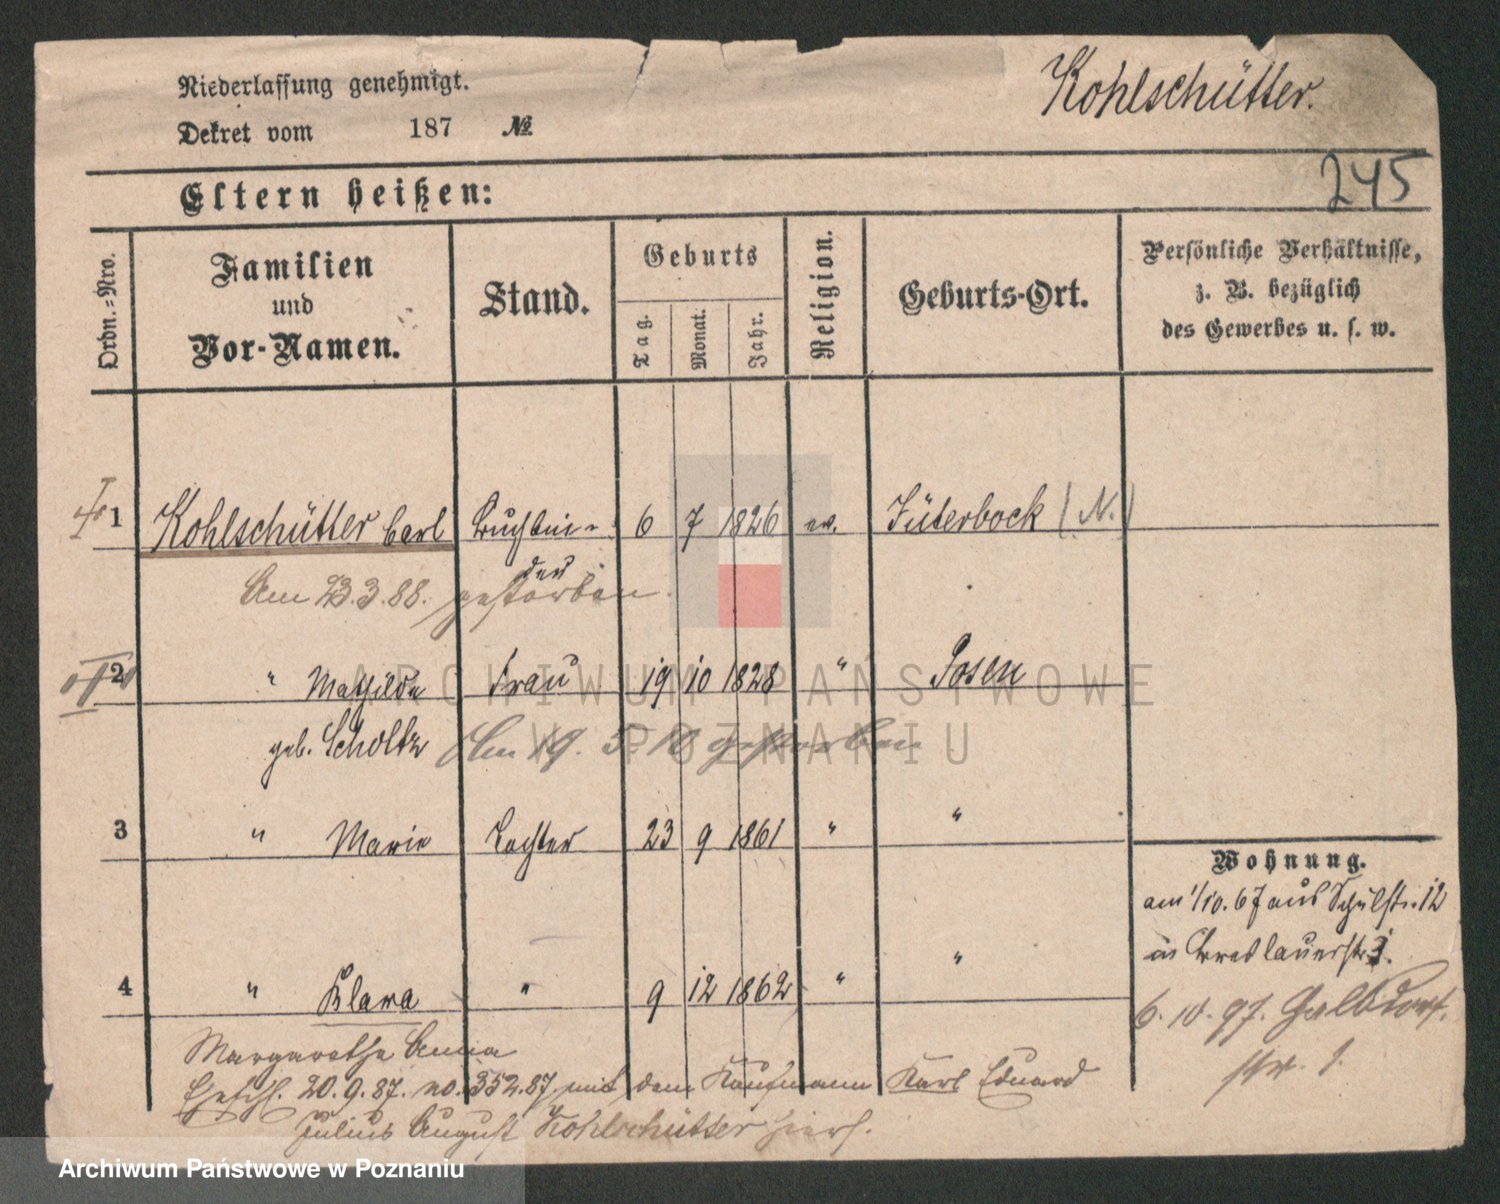 Niederlassung genehmigt.
Kohlschütter.
Dekret vom 187 №
245
Eltern heißen:
Ordn.=Nro.
Familien
und
Vor-Namen.
Stand.
Geburts
Tag.
Monat.
Jahr.
Religion.
Geburts-Ort.
Persönliche Verhältnisse,
z. B. bezüglich
des Gewerbes u. s. w.
1 Kohlschütter Carl Buchbin- 6 7 1826 ev. Jüterbock (N.)
der
Am 23.3.88. gestorben.
2 " Mathilde Frau 19 10 1828 " Posen
geb. Scholtz Am 19. 5. 10 gestorben
3 " Marie Tochter 23 9 1861 " "
Wohnung.
am 1/10. 67 aus Schulstr. 12
in Breslauerstr 3.
4 " Klara " 9 12 1862 " "
6. 10. 97. Halbdorf.
str. 1.
Margarethe Anna
Eheschl. 20.9.87. no. 352.87 mit dem Kaufmann Karl Eduard
Julius August Kohlschütter hiers.
ARCHIWUM PAŃSTWOWE
W POZNANIU
Archiwum Państwowe w Poznaniu